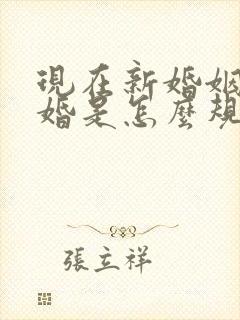 現在新婚姻
婚是怎麼規
張立祥